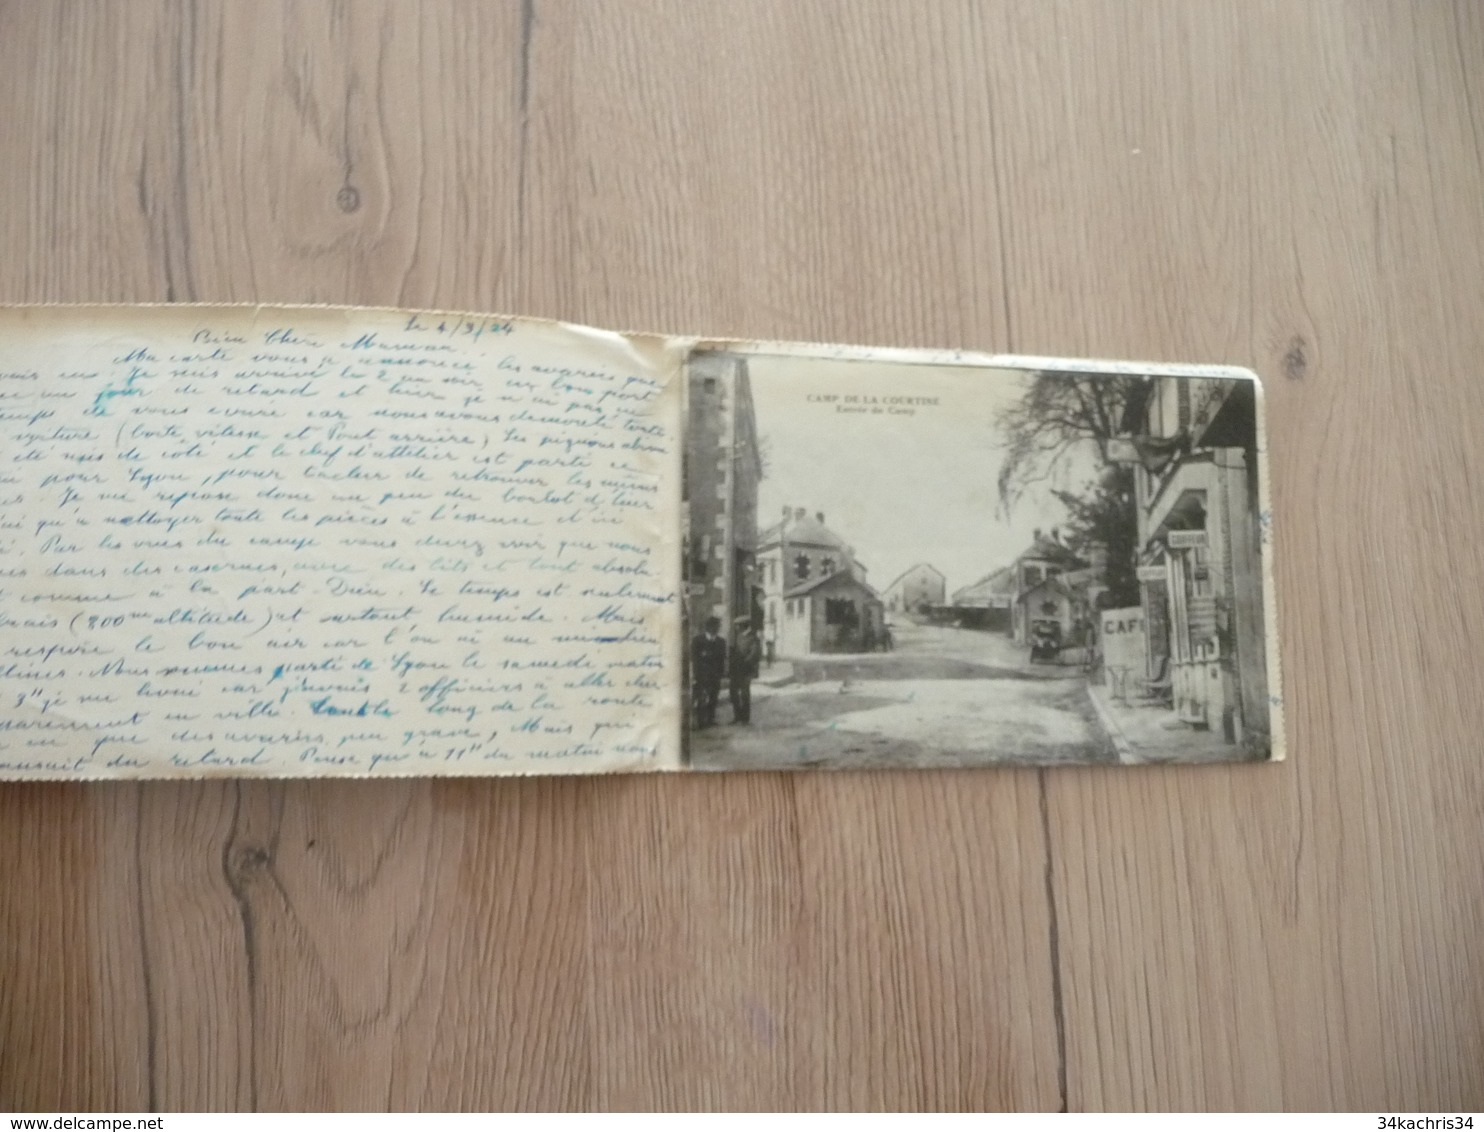 Le 4/3/24
Bien Chère Maman.
Ma carte vous a annoncé les avaries que
Je suis arrivé le 2 au soir, à bon port
un jour de retard et hier je n'ai pas eu
temps de vous écrire car nous avons démonté toute
voiture (boite vitesse et Pont arrière) Les pignons
été mis de coté et le chef d'attelier est parti ce
pour Lyon, pour tacher de retrouver les mêmes
Je me repose donc un peu du boulot d'hier
qu'à nettoyer toute les pièces à l'essence et
Par les vues du camp vous devez voir que nous
dans des casernes, avec des lits et tout absolu-
comme à la part-Dieu. Le temps est seulement
(800m altitude) et surtout humide. Mais
respire le bon air car l'on ai au milieu
Nous sommes parti de Lyon le samedi matin
3" je me car j'avais 2 officiers à aller cher-
en ville. le long de la route
que des avaries peu grave, Mais qui
du retard. Puisqu'à 11" du matin nous
CAMP DE LA COURTINE
Entrée du Camp
COIFFEUR
CAFÉ
34kachris34